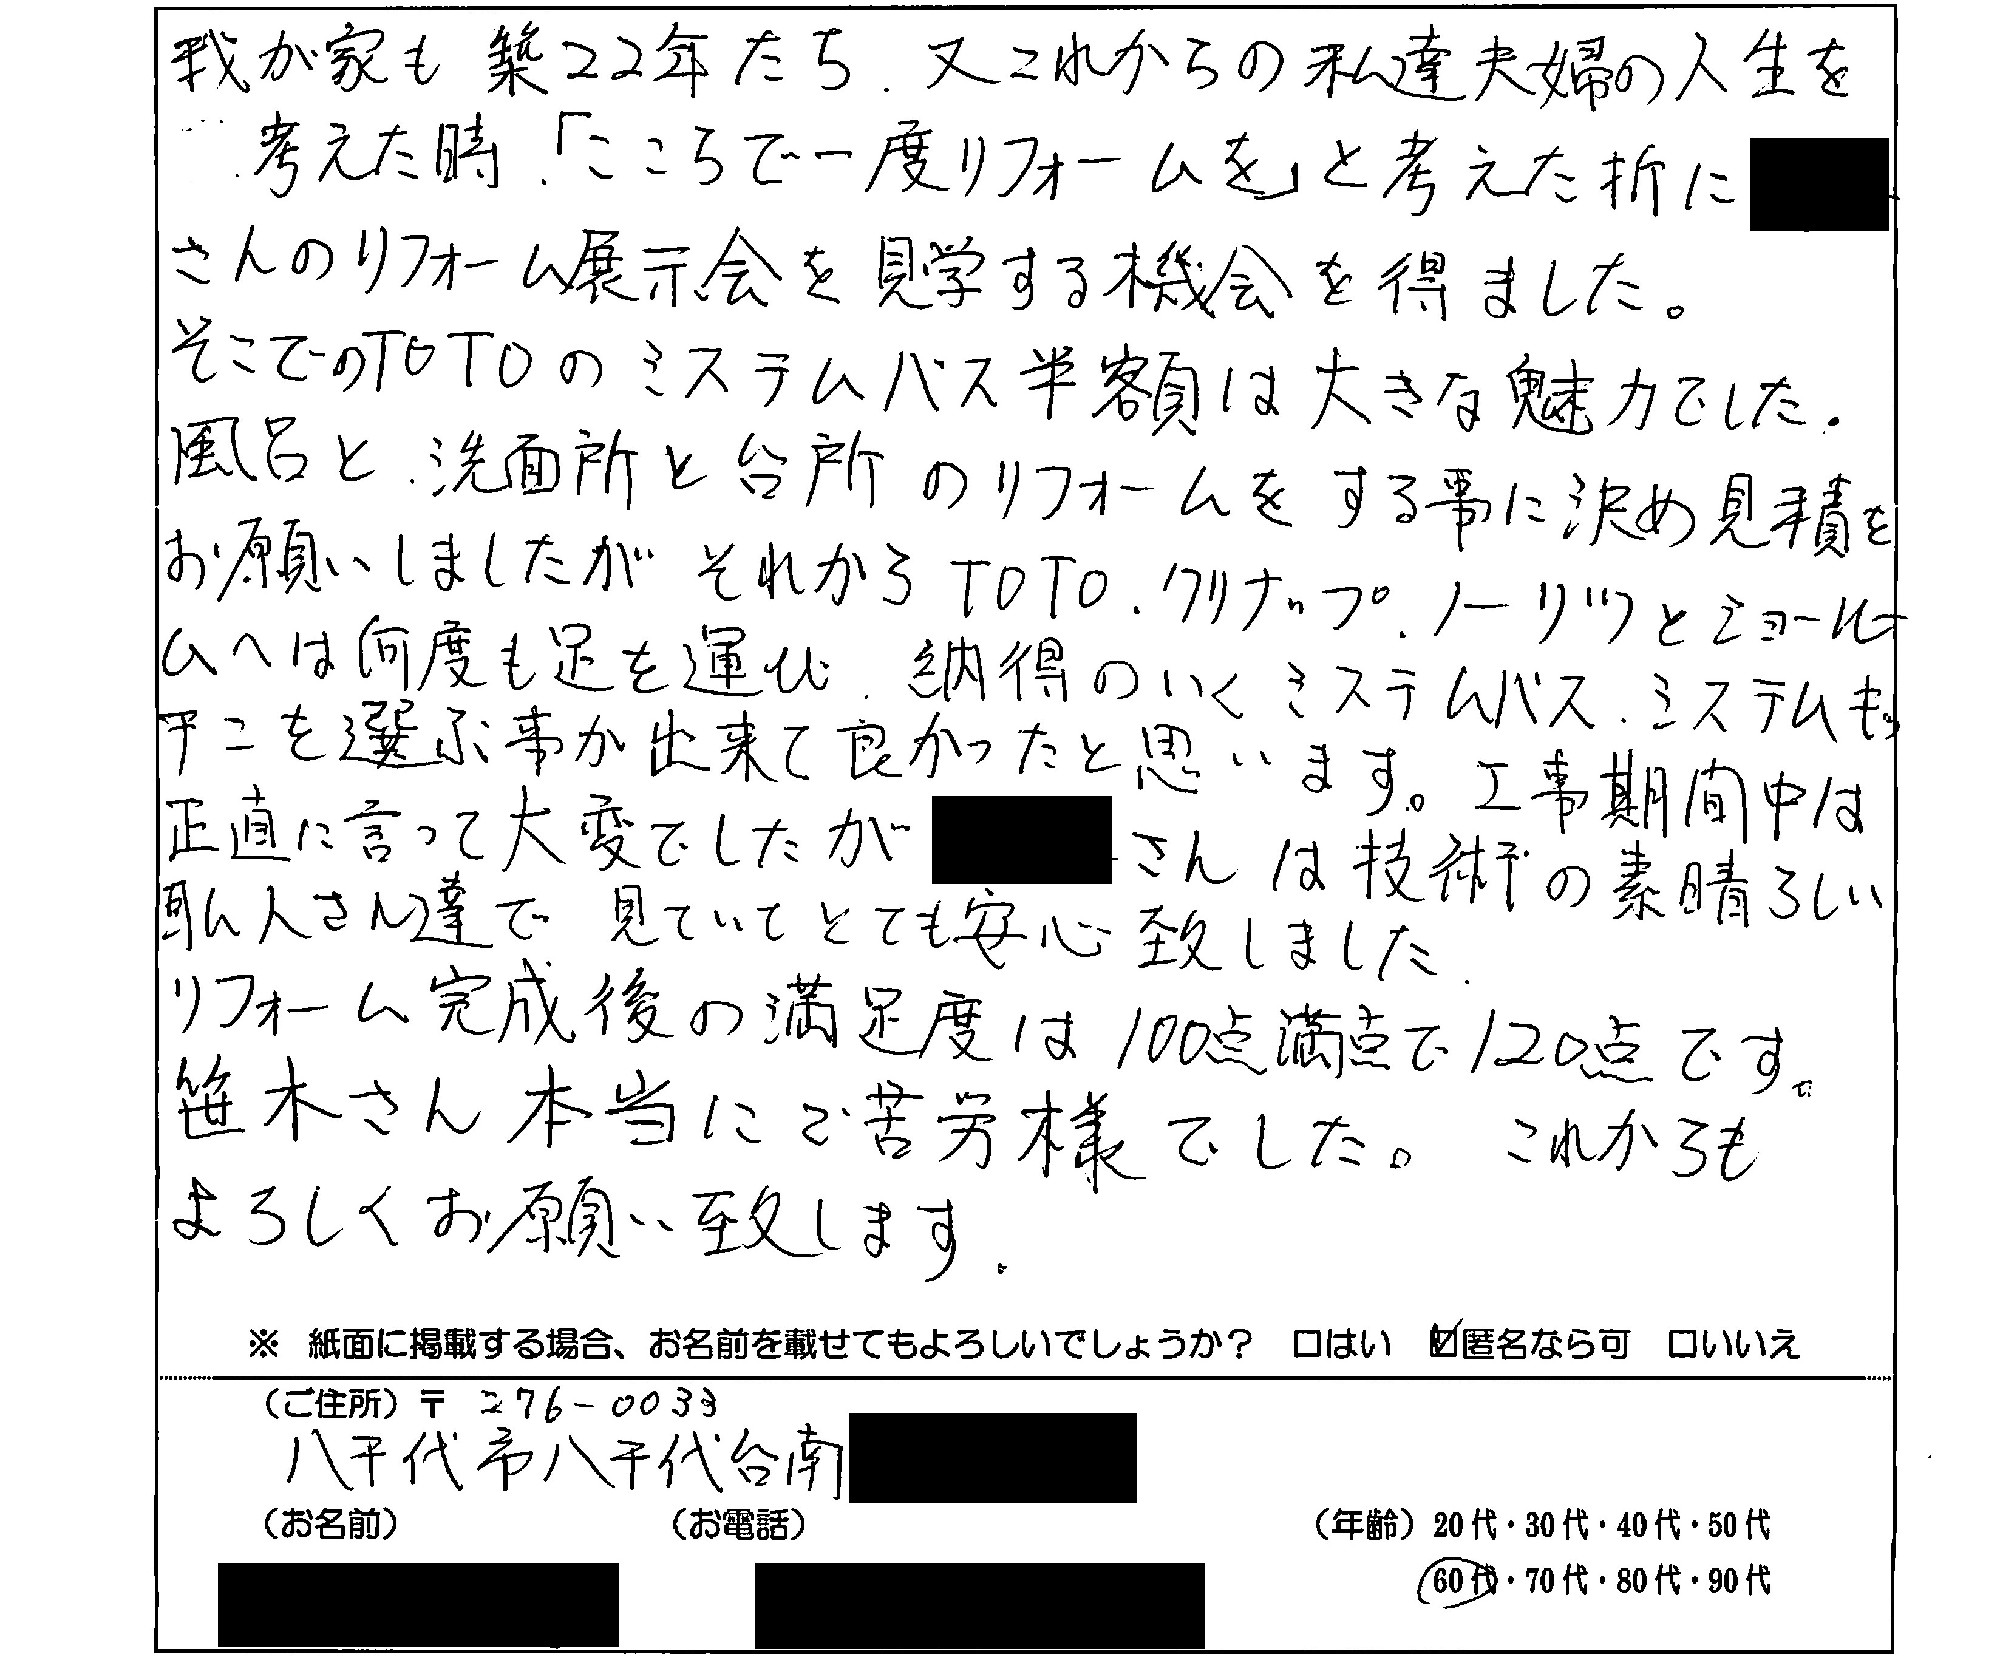 我が家も築22年たち、又これからの私達夫婦の人生を
考えた時、「こころで一度リフォームを」と考えた折に
さんのリフォーム展示会を見学する機会を得ました。
そこでのTOTOのシステムバス半額は大きな魅力でした。
風呂と、洗面所と台所のリフォームをする事に決め見積を
お願いしましたが それから TOTO、クリナップ、ノーリツとショールー
ムへは何度も足を運び、納得のいくシステムバス、システムキッ
チンを選ぶ事が出来て良かったと思います。工事期間中は
正直に言って大変でしたが さんは技術の素晴らしい
職人さん達で 見ていてとても安心致しました。
リフォーム完成後の満足度は100点満点で120点です。
笹木さん本当にご苦労様でした。 これからも
よろしくお願い致します。
※ 紙面に掲載する場合、お名前を載せてもよろしいでしょうか? □はい ☑匿名なら可 □いいえ
(ご住所)〒 276-0033
八千代市八千代台南
(お名前) (お電話) (年齢) 20代・30代・40代・50代
60代・70代・80代・90代